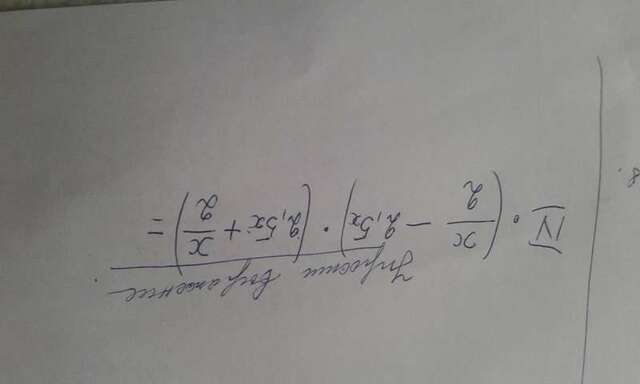 Упрости выражение
IV. (x/2 - 2,5x) · (2,5x + x/2) =
8.